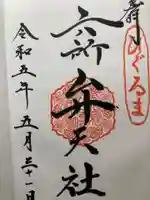 奉
めぐるま
六所
弁天社
令和五年五月三十一日